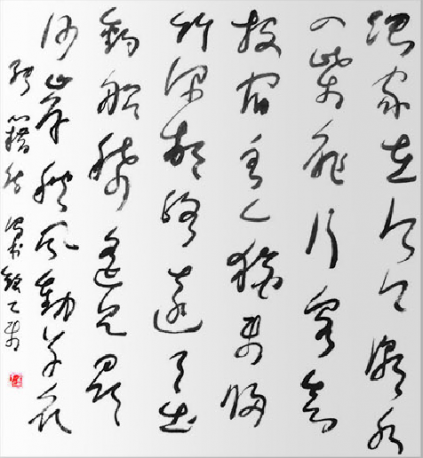 漁家在江口潮水
入柴扉行客欲
投宿主人猶未歸
竹深村路遠月出
釣船稀遙見尋
沙岸春風動草衣
張籍詩